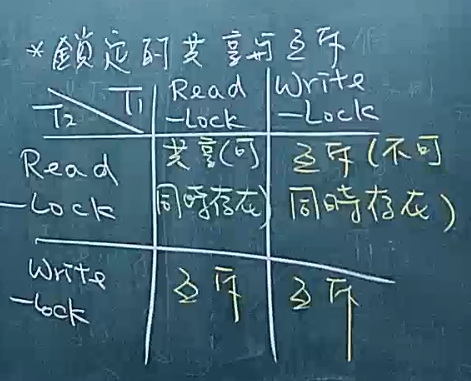 *鎖定的共享与互斥
T2 T1 Read-Lock Write-Lock
Read-Lock 共享(可同時存在) 互斥(不可同時存在)
Write-lock 互斥 互斥